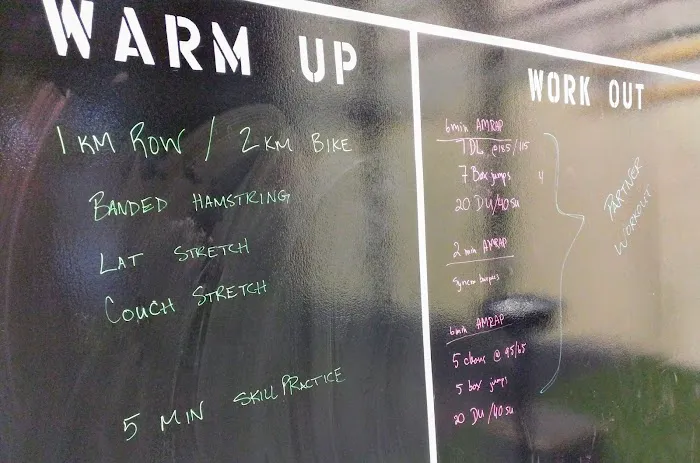 WARM UP
1 KM ROW / 2 KM BIKE
BANDED HAMSTRING
LAT STRETCH
COUCH STRETCH
5 MIN SKILL PRACTICE
WORK OUT
6min AMRAP
7 DL @ /115
7 Box jumps
20 DU/40 su
2 min AMRAP
Syncro burpees
6min AMRAP
5 cleans @ 95/65
5 box jumps
20 DU/40 su
PARTNER
WORKOUT